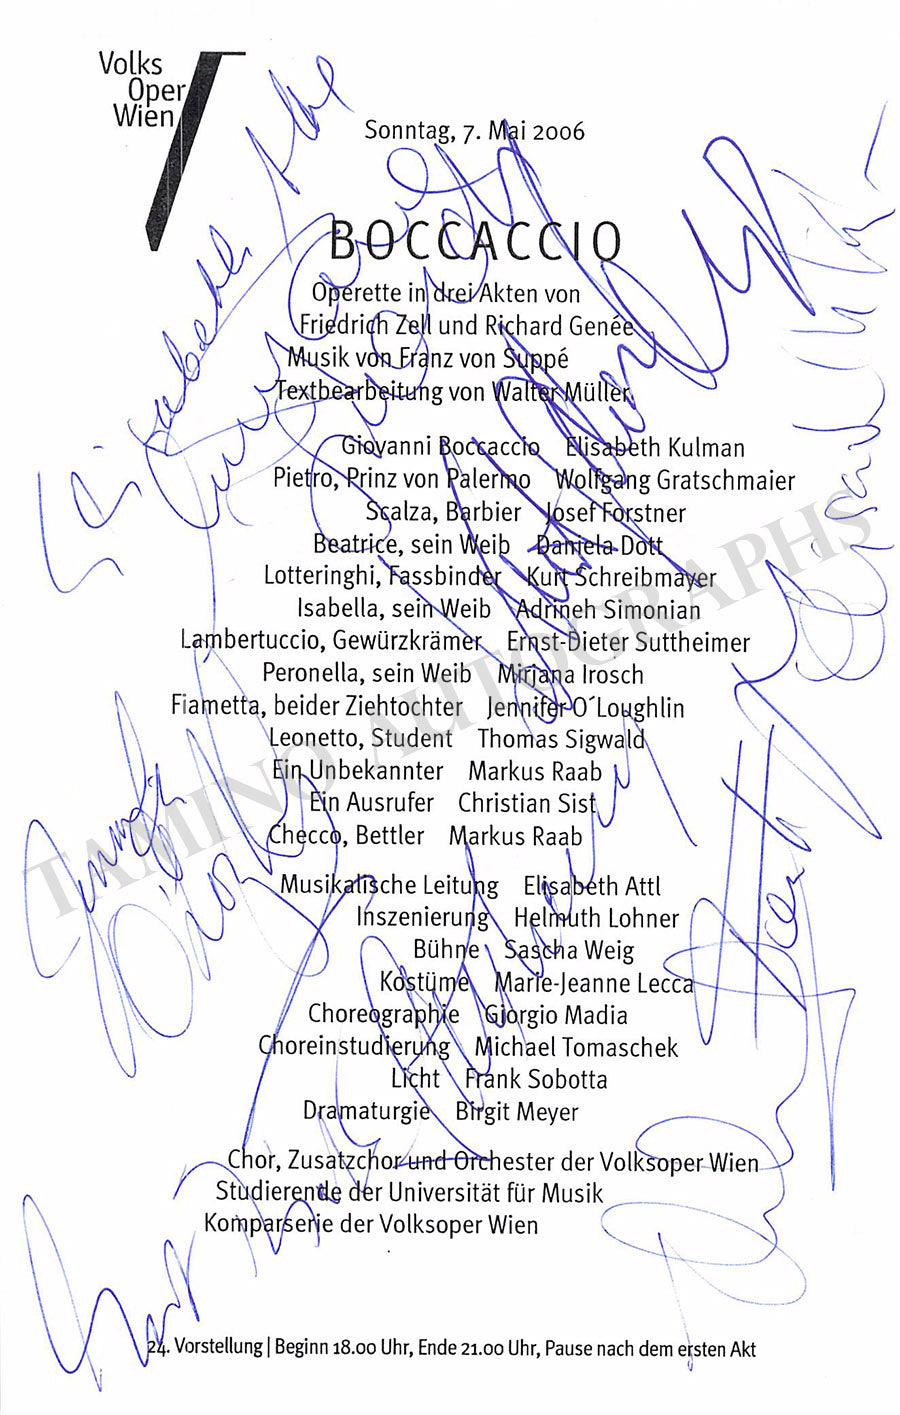 Volks
Oper
Wien
Sonntag, 7. Mai 2006
BOCCACCIO
Operette in drei Akten von
Friedrich Zell und Richard Genée
Musik von Franz von Suppé
Textbearbeitung von Walter Müller
Giovanni Boccaccio Elisabeth Kulman
Pietro, Prinz von Palermo Wolfgang Gratschmaier
Scalza, Barbier Josef Forstner
Beatrice, sein Weib Daniela Dott
Lotteringhi, Fassbinder Kurt Schreibmayer
Isabella, sein Weib Adrineh Simonian
Lambertuccio, Gewürzkrämer Ernst-Dieter Suttheimer
Peronella, sein Weib Mirjana Irosch
Fiametta, beider Ziehtochter Jennifer O´Loughlin
Leonetto, Student Thomas Sigwald
Ein Unbekannter Markus Raab
Ein Ausrufer Christian Sist
Checco, Bettler Markus Raab
Musikalische Leitung Elisabeth Attl
Inszenierung Helmuth Lohner
Bühne Sascha Weig
Kostüme Marie-Jeanne Lecca
Choreographie Giorgio Madia
Choreinstudierung Michael Tomaschek
Licht Frank Sobotta
Dramaturgie Birgit Meyer
Chor, Zusatzchor und Orchester der Volksoper Wien
Studierende der Universität für Musik
Komparserie der Volksoper Wien
24. Vorstellung | Beginn 18.00 Uhr, Ende 21.00 Uhr, Pause nach dem ersten Akt
TAMINO AUTOGRAPHS